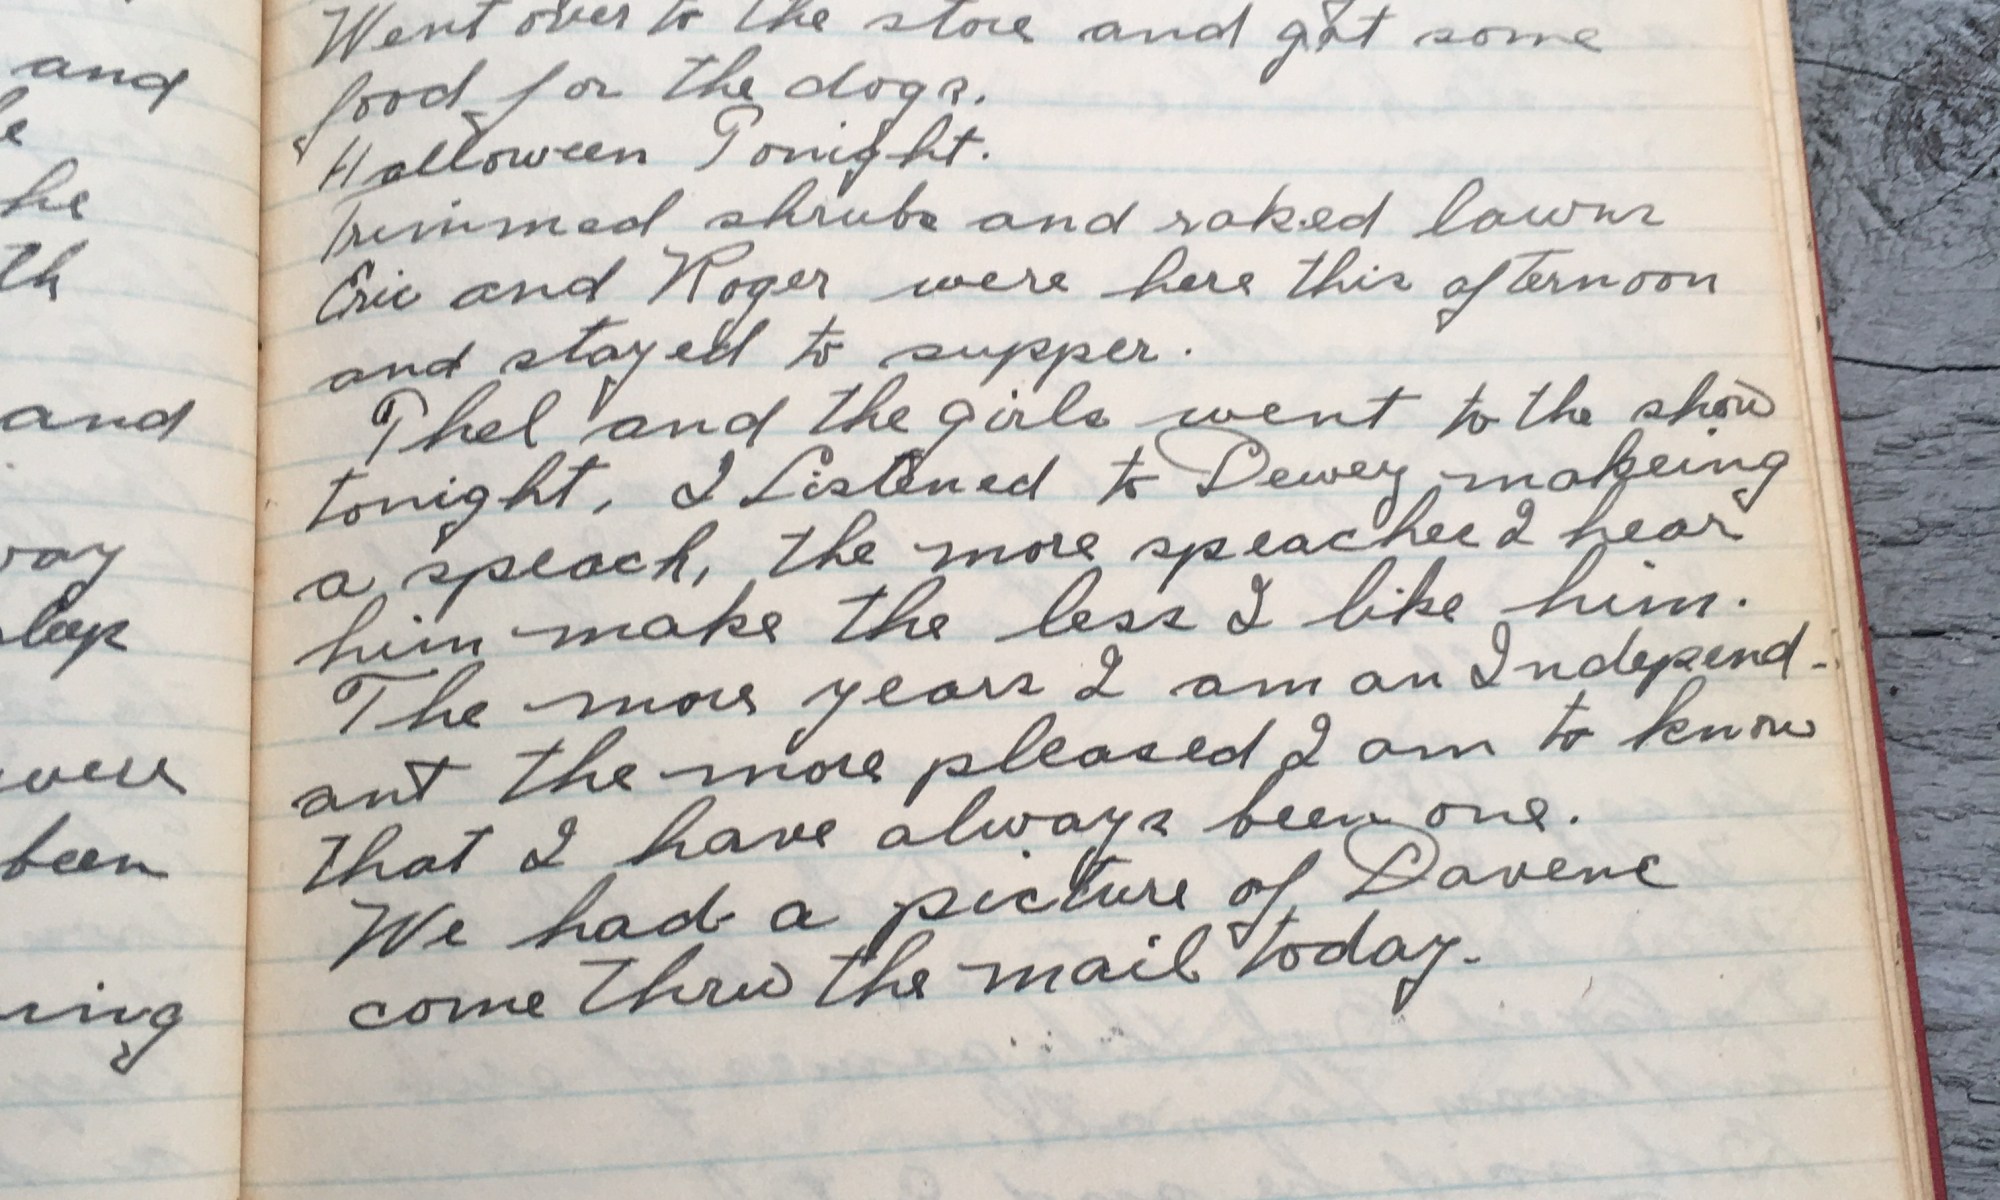 and
he
th
and
been
Went over to the store and got some
food for the dogs.
Halloween Tonight.
Trimmed shrubs and raked lawns
Eric and Roger were here this afternoon
and stayed to supper.
Thel and the girls went to the show
tonight, I Listened to Dewey makeing
a speach, the more speaches I hear
him make the less I like him.
The more years I am an Independ-
ant the more pleased I am to know
that I have always been one.
We had a picture of Davene
come thru the mail today.